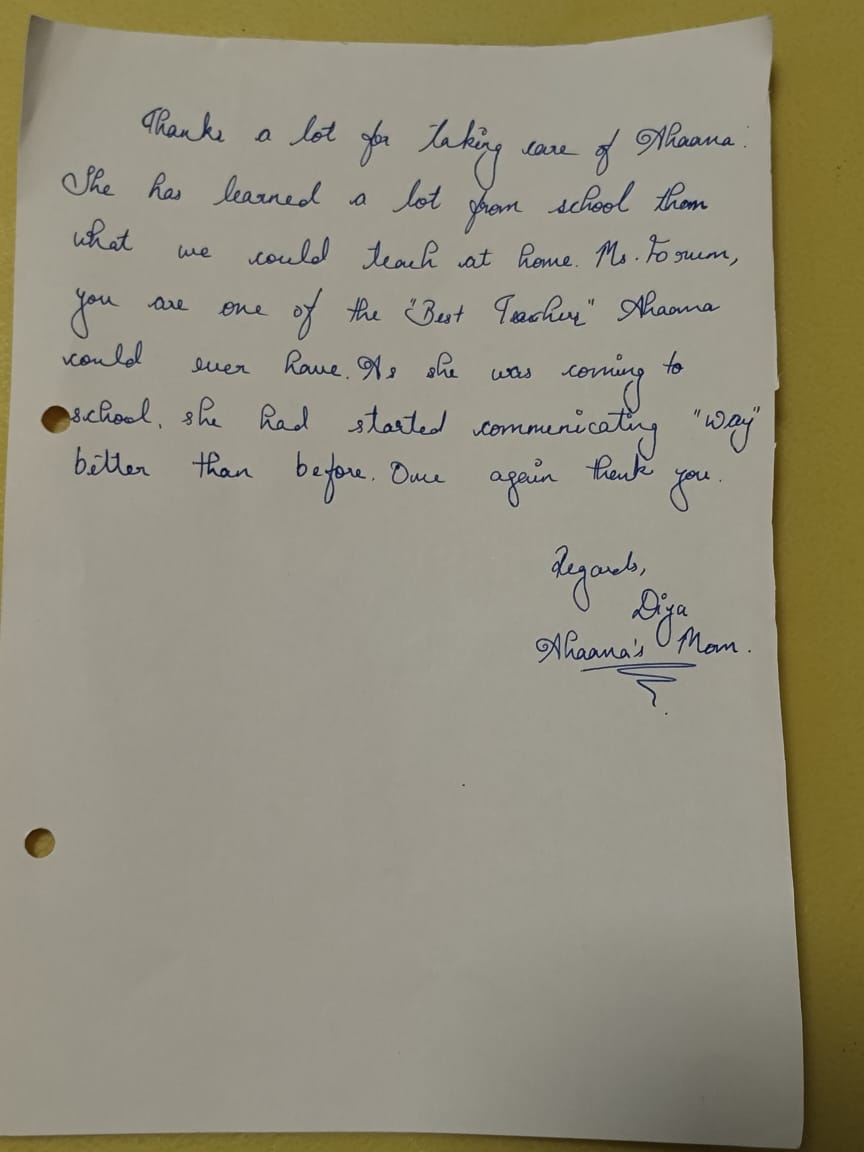 Thanks a lot for taking care of Ahaana.
She has learned a lot from school them
what we could teach at home. Ms. Forum,
you are one of the "Best Teacher" Ahaana
could ever have. As she was coming to
school, she had started communicating "way"
better than before. Once again thank you.
Regards,
Diya
Ahaana's Mom.